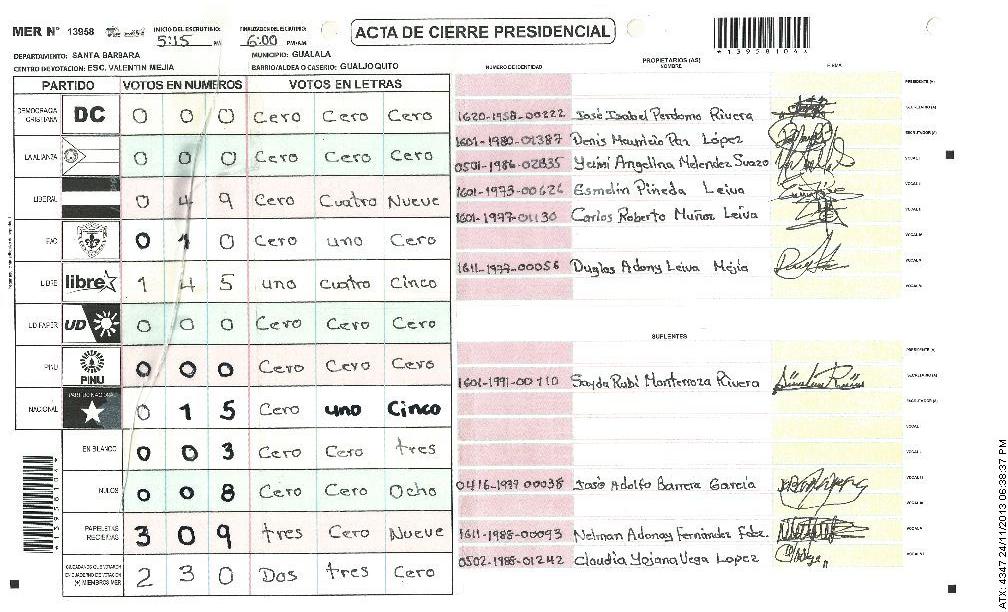 MER Nº 13958 INICIO DEL ESCRUTINIO: 5:15 PM FINALIZACION DEL ESCRUTINIO: 6:00 PM/AM ACTA DE CIERRE PRESIDENCIAL
*13958104*
DEPARTAMENTO: SANTA BARBARA MUNICIPIO: GUALALA
CENTRO DE VOTACION: ESC. VALENTIN MEJIA BARRIO/ALDEA O CASERIO: GUALJOQUITO
PARTIDO VOTOS EN NUMEROS VOTOS EN LETRAS
DEMOCRACIA CRISTIANA DC 0 0 0 Cero Cero Cero
LA ALIANZA 0 0 0 Cero Cero Cero
LIBERAL 0 4 9 Cero Cuatro Nueve
FAC 0 1 0 Cero uno Cero
LIBRE libre 1 4 5 uno cuatro Cinco
UD FAPER UD 0 0 0 Cero Cero Cero
PINU PINU 0 0 0 Cero Cero Cero
NACIONAL PARTIDO NACIONAL 0 1 5 Cero uno Cinco
EN BLANCO 0 0 3 Cero Cero tres
NULOS 0 0 8 Cero Cero Ocho
PAPELETAS RECIBIDAS 3 0 9 tres Cero Nueve
CIUDADANOS QUE VOTARON EN CUADERNO DE VOTACION (+) MIEMBROS MER 2 3 0 Dos tres Cero
PROPIETARIOS (AS)
NUMERO DE IDENTIDAD NOMBRE FIRMA
PRESIDENTE (A)
1620-1958-00222 José Isabel Perdomo Rivera SECRETARIO (A)
1601-1980-01387 Denis Mauricio Paz López ESCRUTADOR (A)
0501-1986-02835 Yeimi Angelina Melendez Suazo VOCAL I
1601-1973-00626 Esmelin Pineda Leiva VOCAL II
1601-1977-01130 Carlos Roberto Muñoz Leiva
1611-1977-00056 Duglas Adony Leiva Mejía
SUPLENTES
PRESIDENTE (A)
1601-1991-00710 Sayda Rubí Monterroza Rivera SECRETARIO (A)
ESCRUTADOR (A)
0416-1977 00038 José Adolfo Barrera García
1611-1988-00093 Nelman Adonay Fernández
0502-1988-01242 Claudia Yojana Vega Lopez
ATX: 4347 24/11/2013 06:38:37 PM